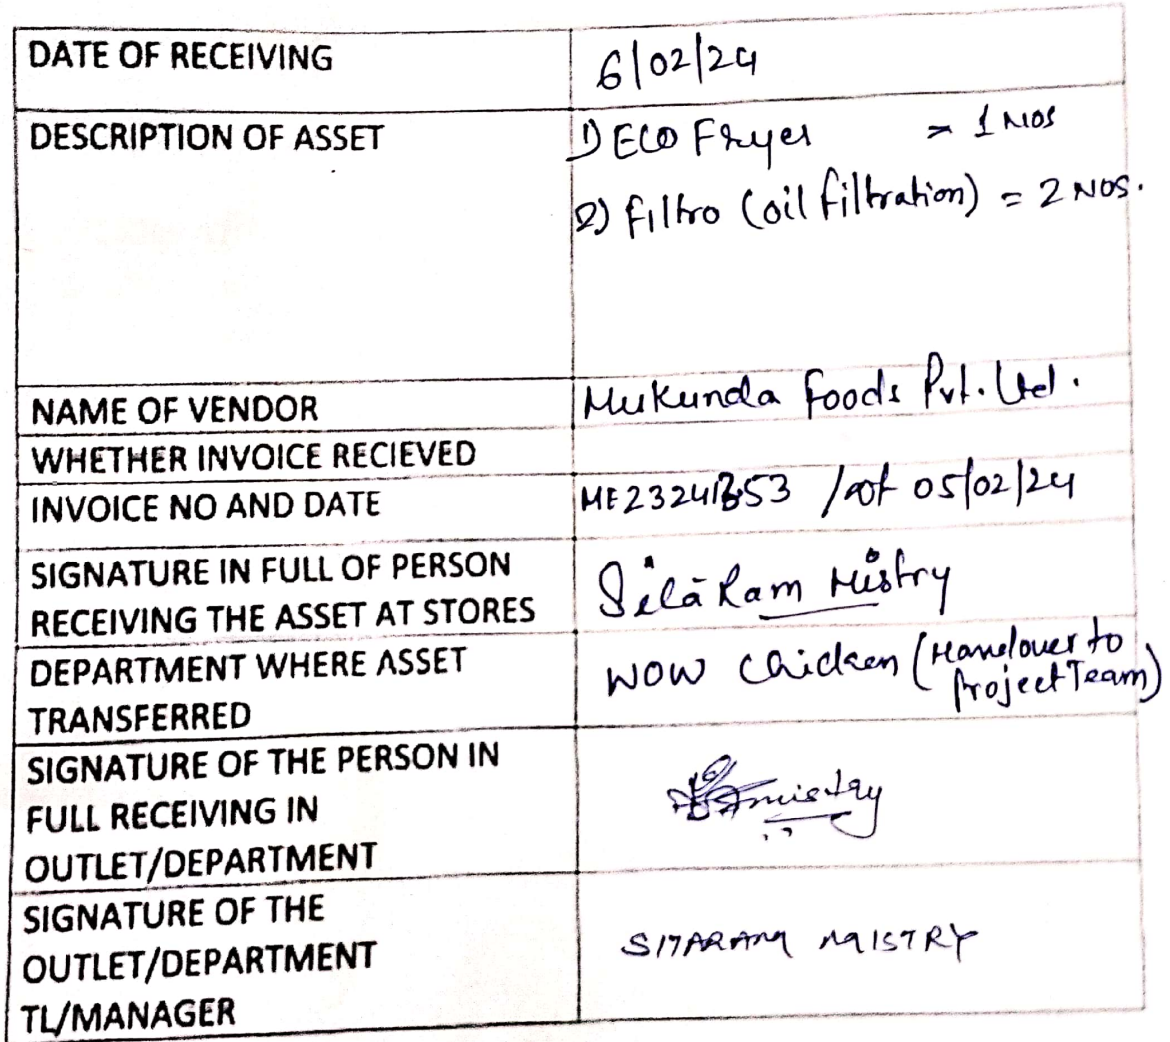 DATE OF RECEIVING 6/02/24
DESCRIPTION OF ASSET 1) ECO Fryer = 1 NOS
2) filtro (oil filtration) = 2 NOS.
NAME OF VENDOR Mukunda foods Pvt. Ltd.
WHETHER INVOICE RECIEVED
INVOICE NO AND DATE 05/02/24
SIGNATURE IN FULL OF PERSON
RECEIVING THE ASSET AT STORES
Sitaram Mistry
DEPARTMENT WHERE ASSET
TRANSFERRED
WOW Chicken (Handover to
Project Team)
SIGNATURE OF THE PERSON IN
FULL RECEIVING IN
OUTLET/DEPARTMENT
mistry
SIGNATURE OF THE
OUTLET/DEPARTMENT
TL/MANAGER
SITARAM MISTRY